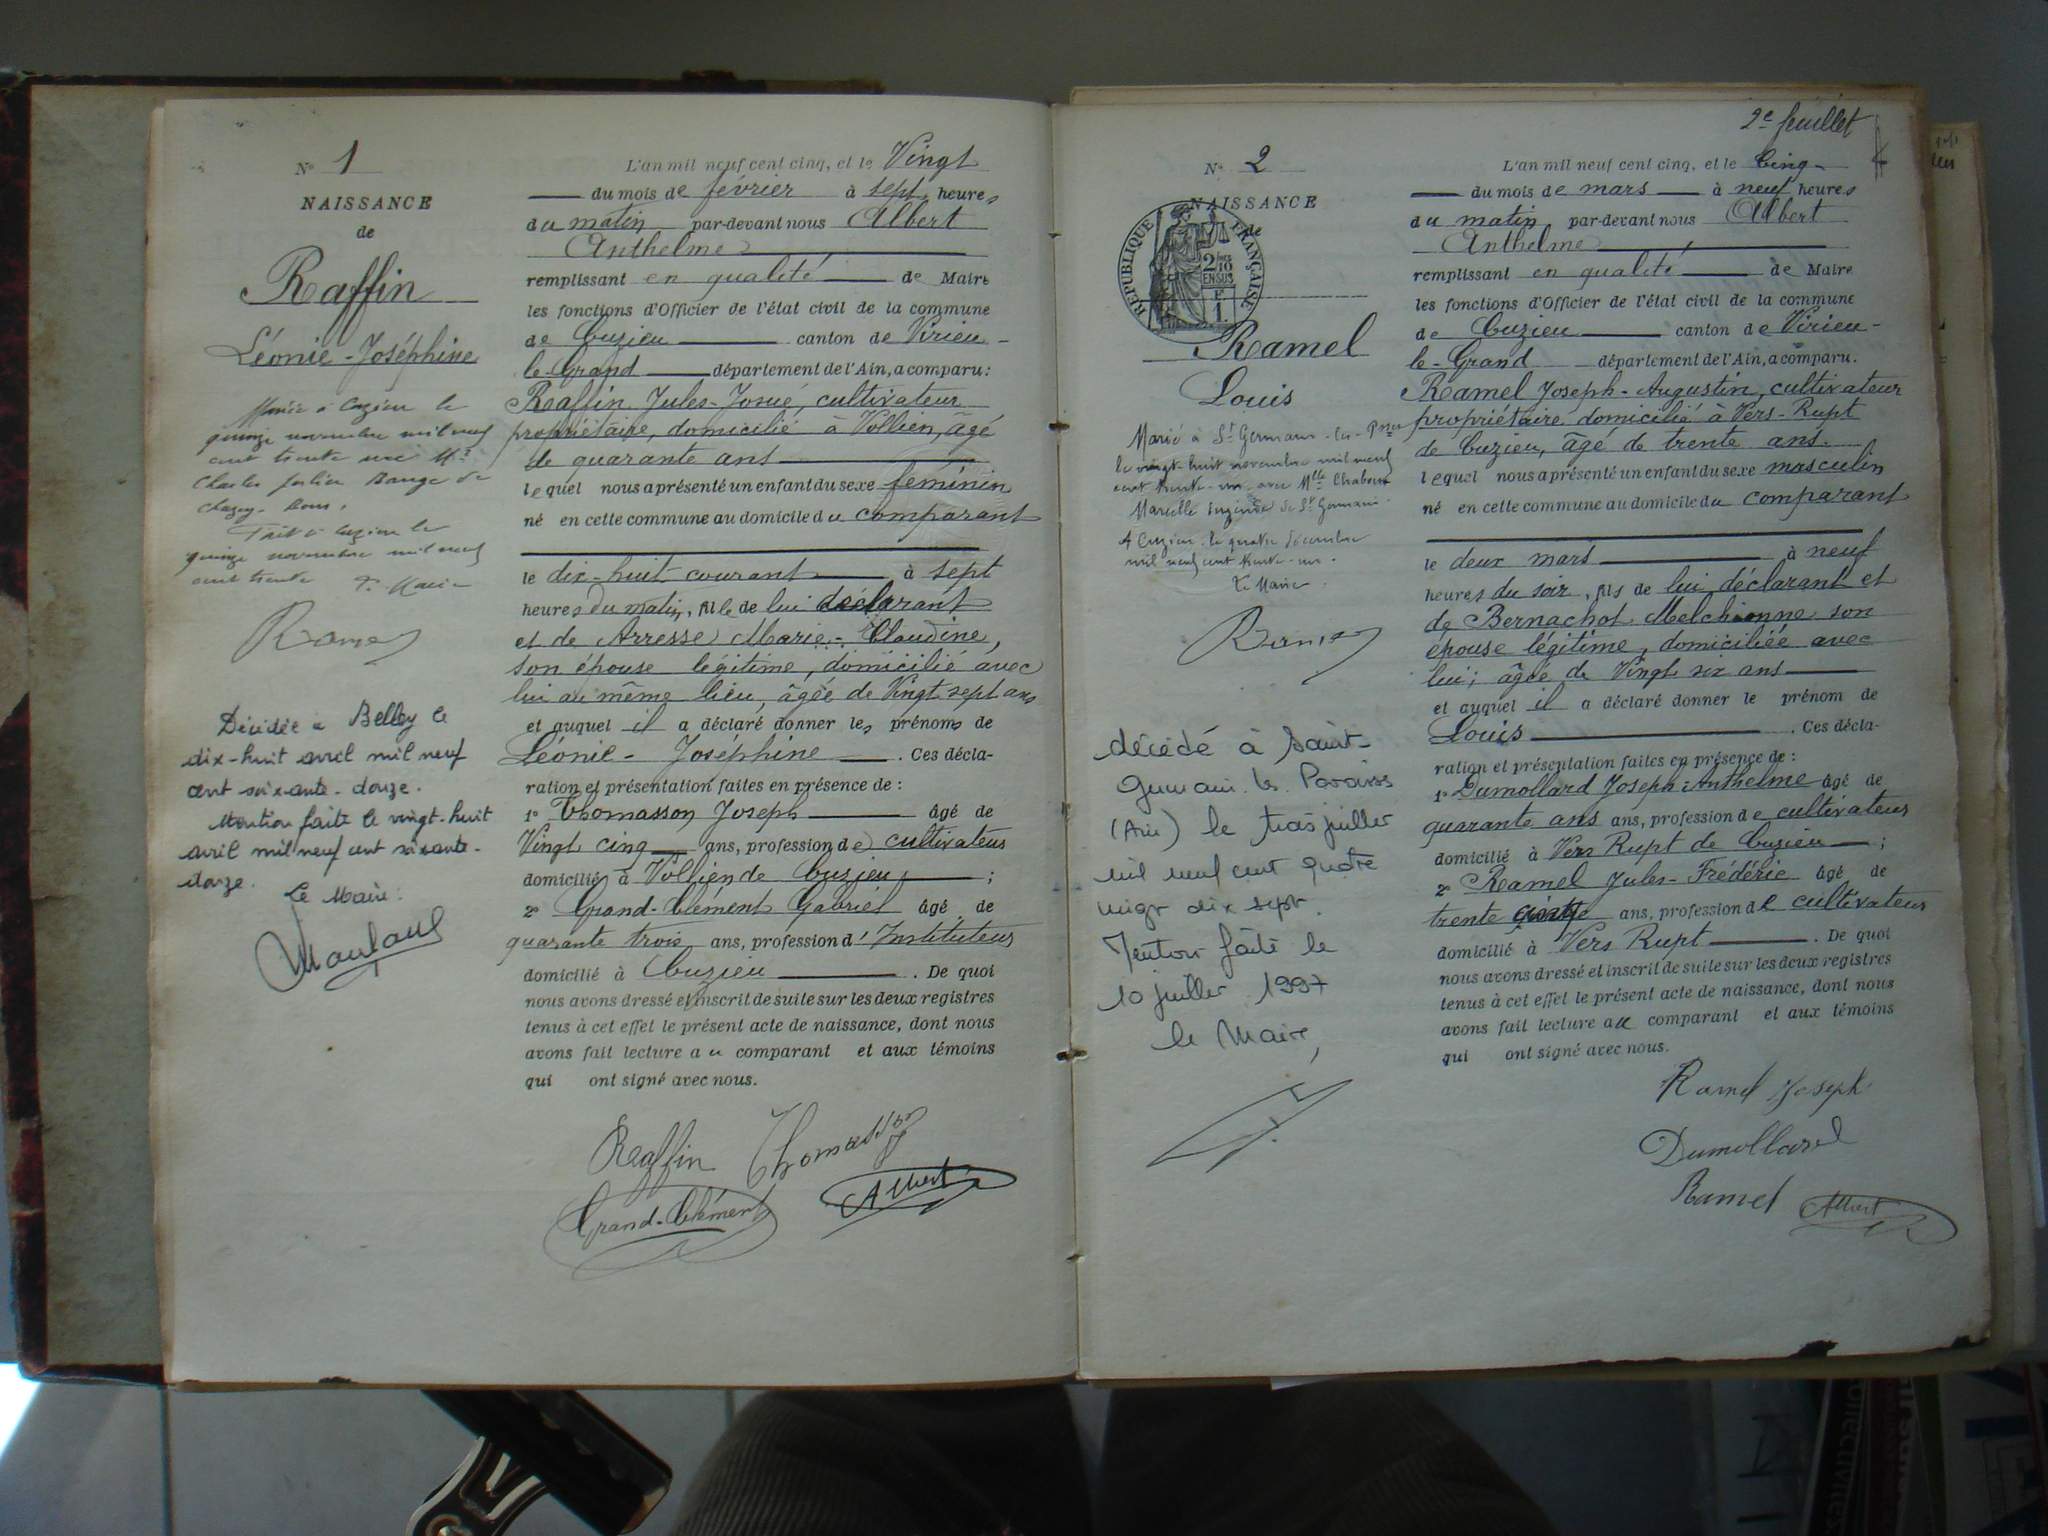 N° 1
NAISSANCE
de
Raffin
Léonie-Joséphine
Mariée à Cuzieu le
quinze novembre mil neuf
cent trente avec Mr
Charles Barge de
Chazey-Bons.
Fait à Cuzieu le
quinze novembre mil neuf
cent trente Le Maire
Ramel
Décédée à Belley le
dix-huit avril mil neuf
cent soixante-douze.
Mention faite le vingt-huit
avril mil neuf cent soixante-
douze.
Le Maire:
L'an mil neuf cent cinq, et le Vingt
du mois de février à sept heures
du matin par-devant nous Albert
Anthelme
remplissant en qualité de Maire
les fonctions d'Officier de l'état civil de la commune
de Cuzieu canton de Virieu-
le-Grand département de l'Ain, a comparu:
Raffin Jules-Josué, cultivateur
propriétaire, domicilié à Vollien, âgé
de quarante ans
lequel nous a présenté un enfant du sexe féminin
né en cette commune au domicile du comparant
le dix-huit courant à sept
heures du matin, fille de lui déclarant
et de Arresse Marie-Claudine,
son épouse légitime, domicilié avec
lui au même lieu, âgée de Vingt sept ans
et auquel il a déclaré donner les prénoms de
Léonie-Joséphine. Ces décla-
ration et présentation faites en présence de:
1° Thomasson Joseph âgé de
Vingt cinq ans, profession de cultivateur
domicilié à Vollien de Cuzieu;
2° Grand-Clément Gabriel âgé de
quarante trois ans, profession d'Instituteur
domicilié à Cuzieu. De quoi
nous avons dressé et inscrit de suite sur les deux registres
tenus à cet effet le présent acte de naissance, dont nous
avons fait lecture au comparant et aux témoins
qui ont signé avec nous.
Raffin Thomasson
Grand-Clément Albert
2e feuillet
N° 2
NAISSANCE
de
REPUBLIQUE FRANÇAISE
2/10 EN SUS
1.
Ramel
Louis
Marié à St Germain-les-Pses
le vingt-huit novembre mil neuf
cent trente-un avec Melle Chaboud
Marcelle de St Germain.
A Cuzieu le quatre décembre
mil neuf cent trente-un.
Le Maire
Ramel
décédé à Saint-
Germain les Paroisses
(Ain) le trois juillet
mil neuf cent quatre
vingt dix sept.
Mention faite le
10 juillet 1997
le Maire,
L'an mil neuf cent cinq, et le Cinq
du mois de mars à neuf heures
du matin par-devant nous Albert
Anthelme
remplissant en qualité de Maire
les fonctions d'Officier de l'état civil de la commune
de Cuzieu canton de Virieu-
le-Grand département de l'Ain, a comparu.
Ramel Joseph-Augustin, cultivateur
propriétaire domicilié à Vers-Rupt
de Cuzieu, âgé de trente ans.
lequel nous a présenté un enfant du sexe masculin
né en cette commune au domicile du comparant
le deux mars à neuf
heures du soir, fils de lui déclarant et
de Bernachot Melchionne son
épouse légitime, domiciliée avec
lui; âgée de Vingt six ans
et auquel il a déclaré donner le prénom de
Louis. Ces décla-
ration et présentation faites en présence de:
1° Dumollard Joseph-Anthelme âgé de
quarante ans ans, profession de cultivateur
domicilié à Vers Rupt de Cuzieu;
2° Ramel Jules-Frédéric âgé de
trente ans, profession de cultivateur
domicilié à Vers Rupt. De quoi
nous avons dressé et inscrit de suite sur les deux registres
tenus à cet effet le présent acte de naissance, dont nous
avons fait lecture au comparant et aux témoins
qui ont signé avec nous.
Ramel Joseph
Dumollard
Ramel Albert